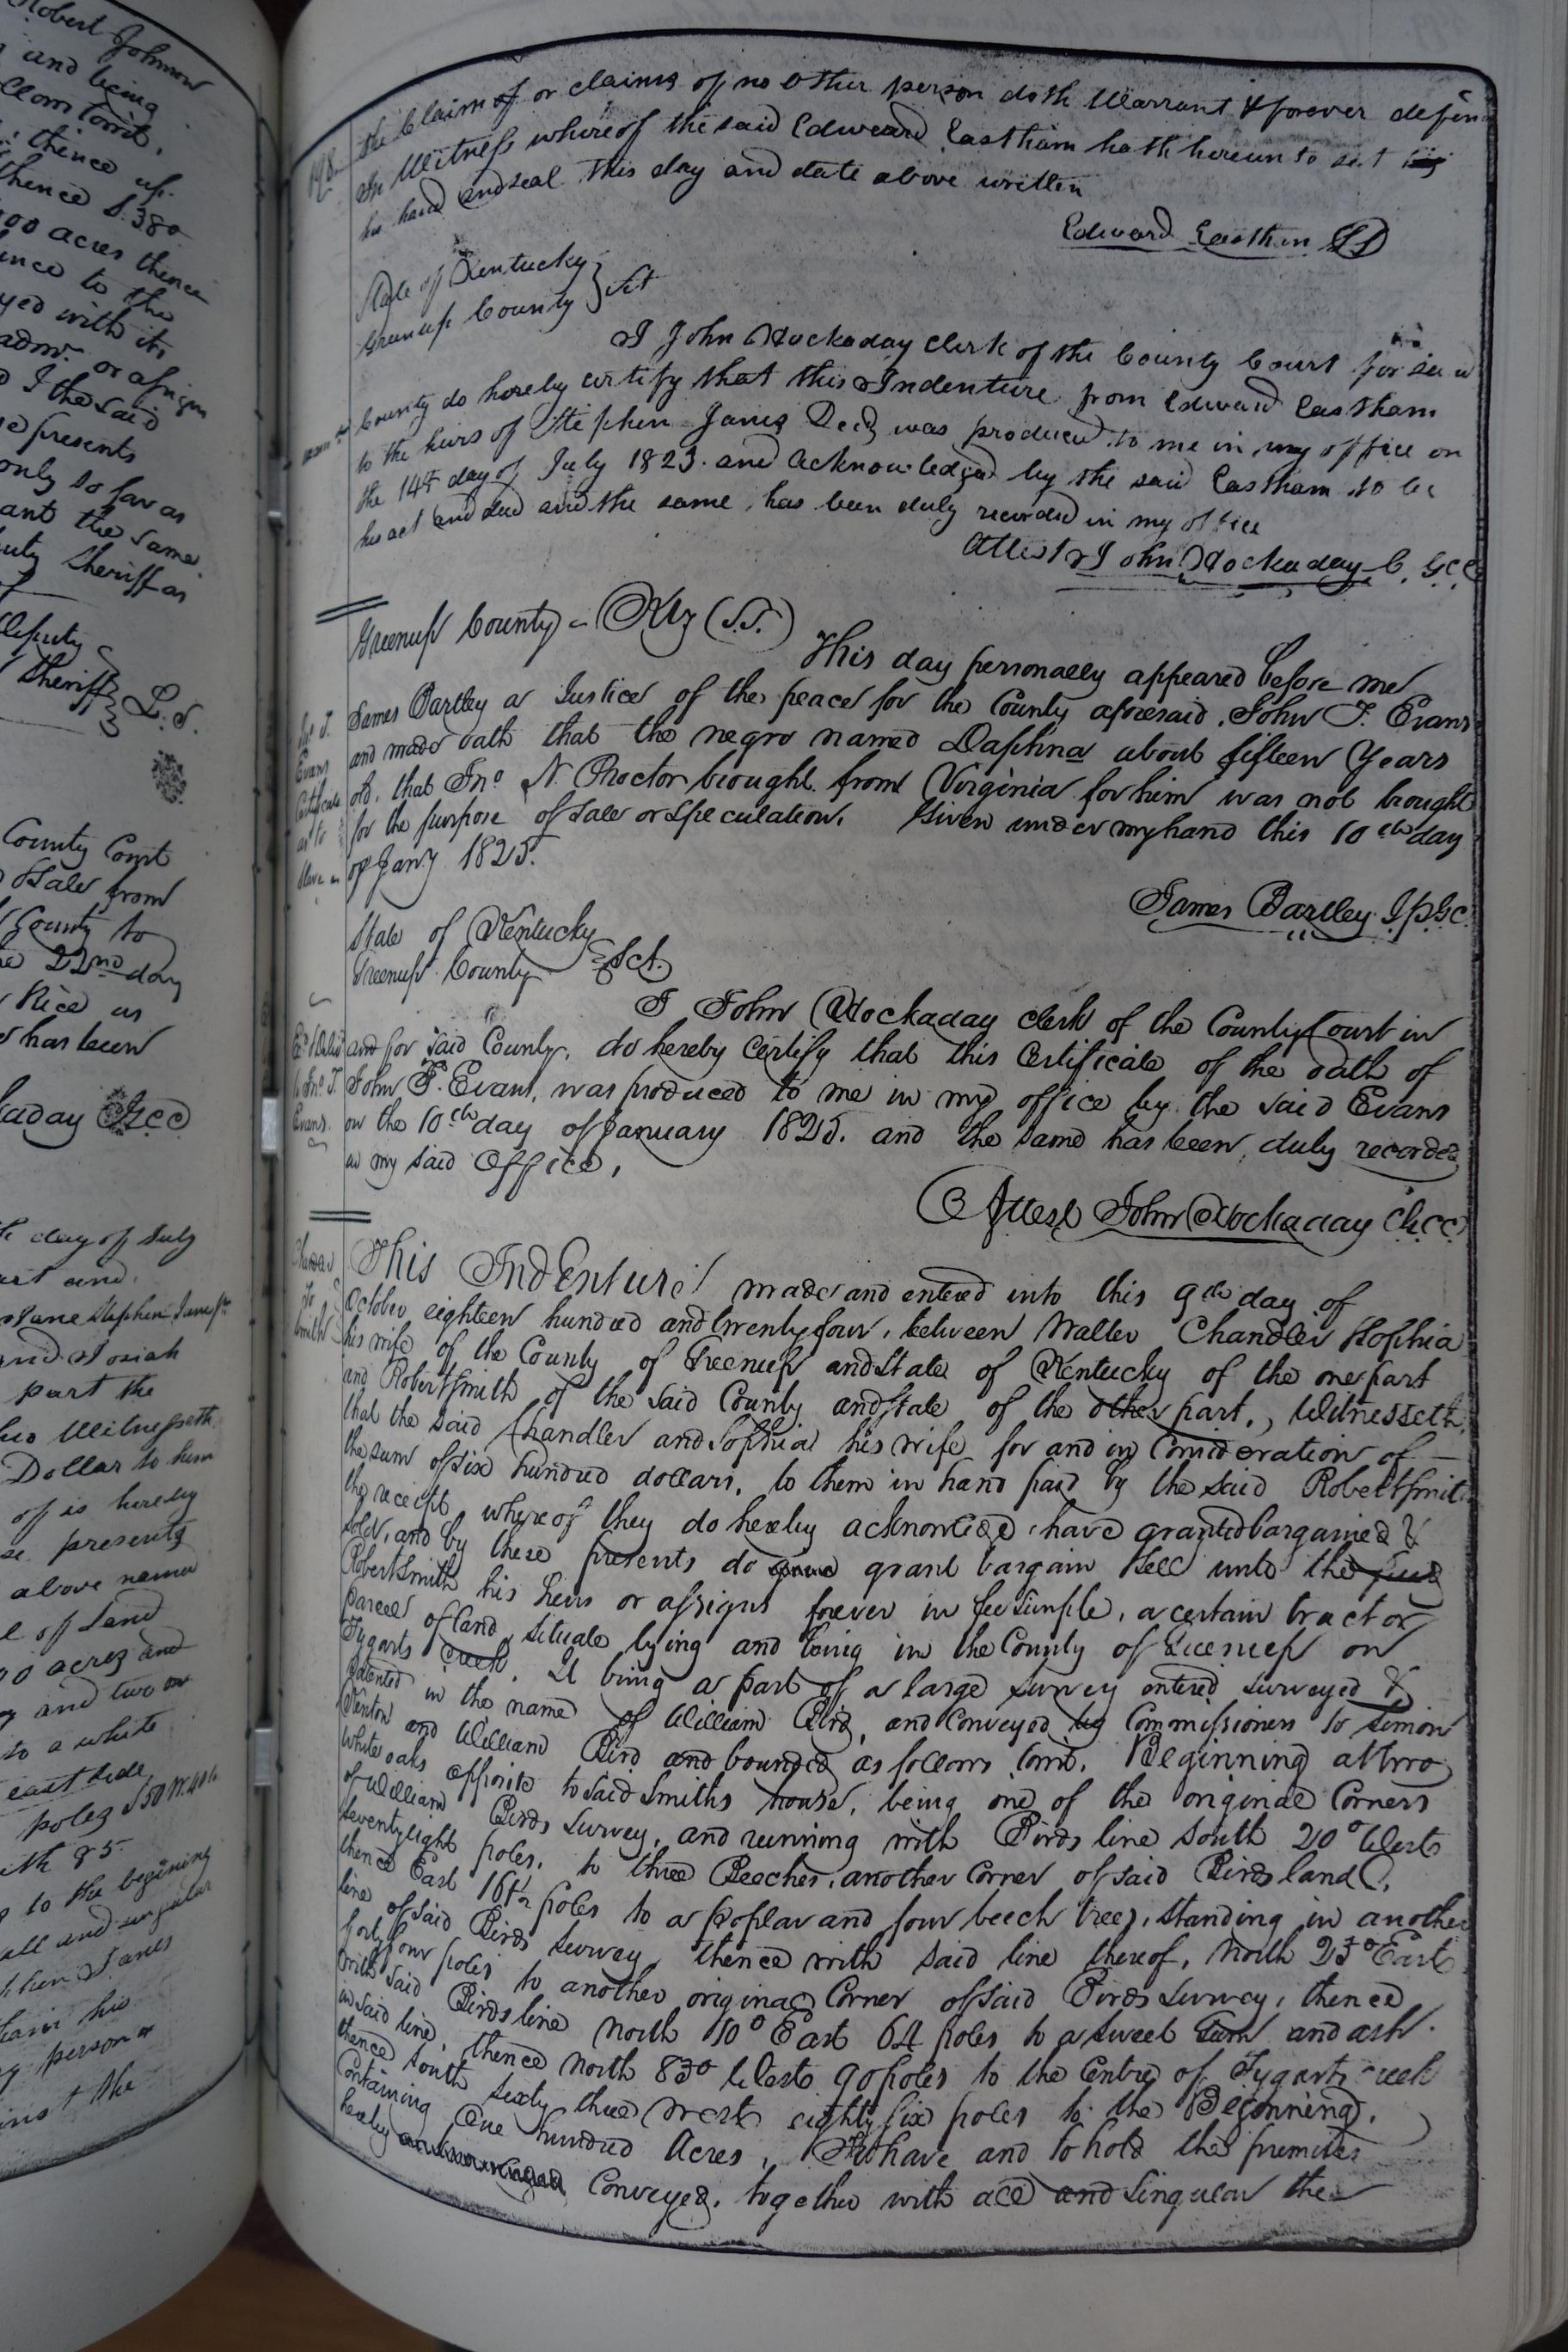 Robert Johnson
and being
thence up
thence S. 380
100 acres thence
to the
with its
or assign
I the said
presents
only so far as
the same
Sheriff as
Deputy
Sheriff
L. S.
County Court
Sale from
County to
22nd day
Rice as
has been
GCC
day of July
and
Jane Stephen Janes
and Josiah
part the
Witnesseth
Dollar to him
of is hereby
presents
above named
of Land
acres and
and two
to a white
east side
poles S 50 W. 40
85
to the begining
all and singular
Janes
his
person or
the
198
the Claim of or claims of no other person doth Warrant & forever defend
In Witness whereof the said Edweard Eastham hath hereunto set
his hand and seal this day and date above written
Edward Eastham
State of Kentucky } Sct
Greenup County
I John Hockaday clerk of the County Court for said
County do hereby certify that this Indenture from Edward Eastham
to the heirs of Stephen Janes Decd was produced to me in my office on
the 14th day of July 1823. and acknowledged by the said Eastham to be
his act and deed and the same has been duly recorded in my office
Attest John Hockaday C. GCC
Greenup County - Ky (S.S.)
This day personally appeared before me
James Bartley a Justice of the peace for the County aforesaid, John T. Evans
and made oath that the negro named Daphna about fifteen Years
old, that Jno N. Proctor brought from Virginia for him was not brought
for the purpose of sale or speculation. Given under my hand this 10th day
of Jany 1825.
Jno. T.
Evans
Certificate
as to
Slave
James Bartley J.P.G.C.
State of Kentucky Sct.
Greenup County
I John Hockaday clerk of the County Court in
and for said County, do hereby certify that this Certificate of the oath of
John T. Evans, was produced to me in my office by the said Evans
on the 10th day of January 1825. and the same has been, duly recorded
in my said Office,
to Jno. T.
Evans.
Attest John Hockaday C.G.C.C.
This Indenture made and entered into this 9th day of
October eighteen hundred and twenty four, between Walter Chandler Sophia
his wife of the County of Greenup and State of Kentucky of the one part
and Robert Smith of the said County and State of the other part, Witnesseth,
that the said Chandler and Sophia his wife for and in Consideration of
the sum of six hundred dollars, to them in hand paid by the said Robert Smith
the receipt whereof they do hereby acknowledge, have granted bargained &
sold, and by these presents do grant bargain sell unto the
Robert Smith his heirs or assigns forever in fee simple, a certain tract or
parcel of land, situate lying and being in the County of Greenup on
Tygarts Creek, it being a part of a large survey entered surveyed &
patented in the name of William Bird, and Conveyed by Commissioners to Simon
Kenton and William Bird and bounded as follows towit. Beginning at two
white oaks opposite to said Smiths house, being one of the original Corners
of William Birds Survey, and running with Birds line South 20° West
seventy eight poles, to three Beeches, another Corner of said Birds land,
thence East 164 poles to a poplar and four beech trees, standing in another
line of said Birds survey thence with said line thereof, North 23° East
forty four poles to another original Corner of said Birds survey, thence
with said Birds line North 10° East 64 poles to a sweet Gum and ash
in said line, thence North 83° West 90 poles to the Centre of Tygarts Creek
thence South sixty three West eighty six poles to the Beginning,
Containing One hundred Acres, To have and to hold the premises
hereby Conveyed, together with all and singular the
Chandler
To
Smith